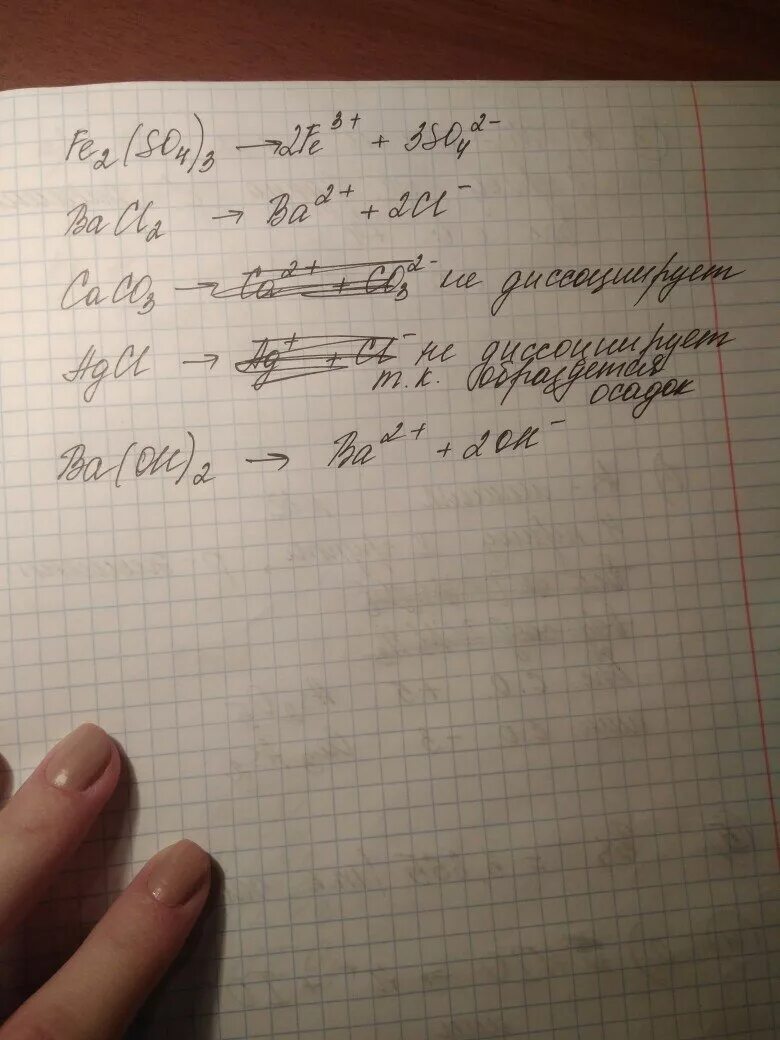 Fe₂(SO₄)₃ → 2Fe³⁺ + 3SO₄²⁻
BaCl₂ → Ba²⁺ + 2Cl⁻
CaCO₃ → Ca²⁺ + CO₃²⁻ не диссоциирует
AgCl → Ag⁺ + Cl⁻ не диссоциирует
т.к. образуется
осадок
Ba(OH)₂ → Ba²⁺ + 2OH⁻